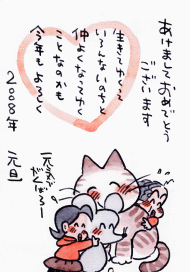 あけましておめでとう
ございます
生きてゆくって
いろんないのちと
仲よくなってゆく
ことなのかも
今年もよろしく
2008年
元旦
元気で
がんばろー